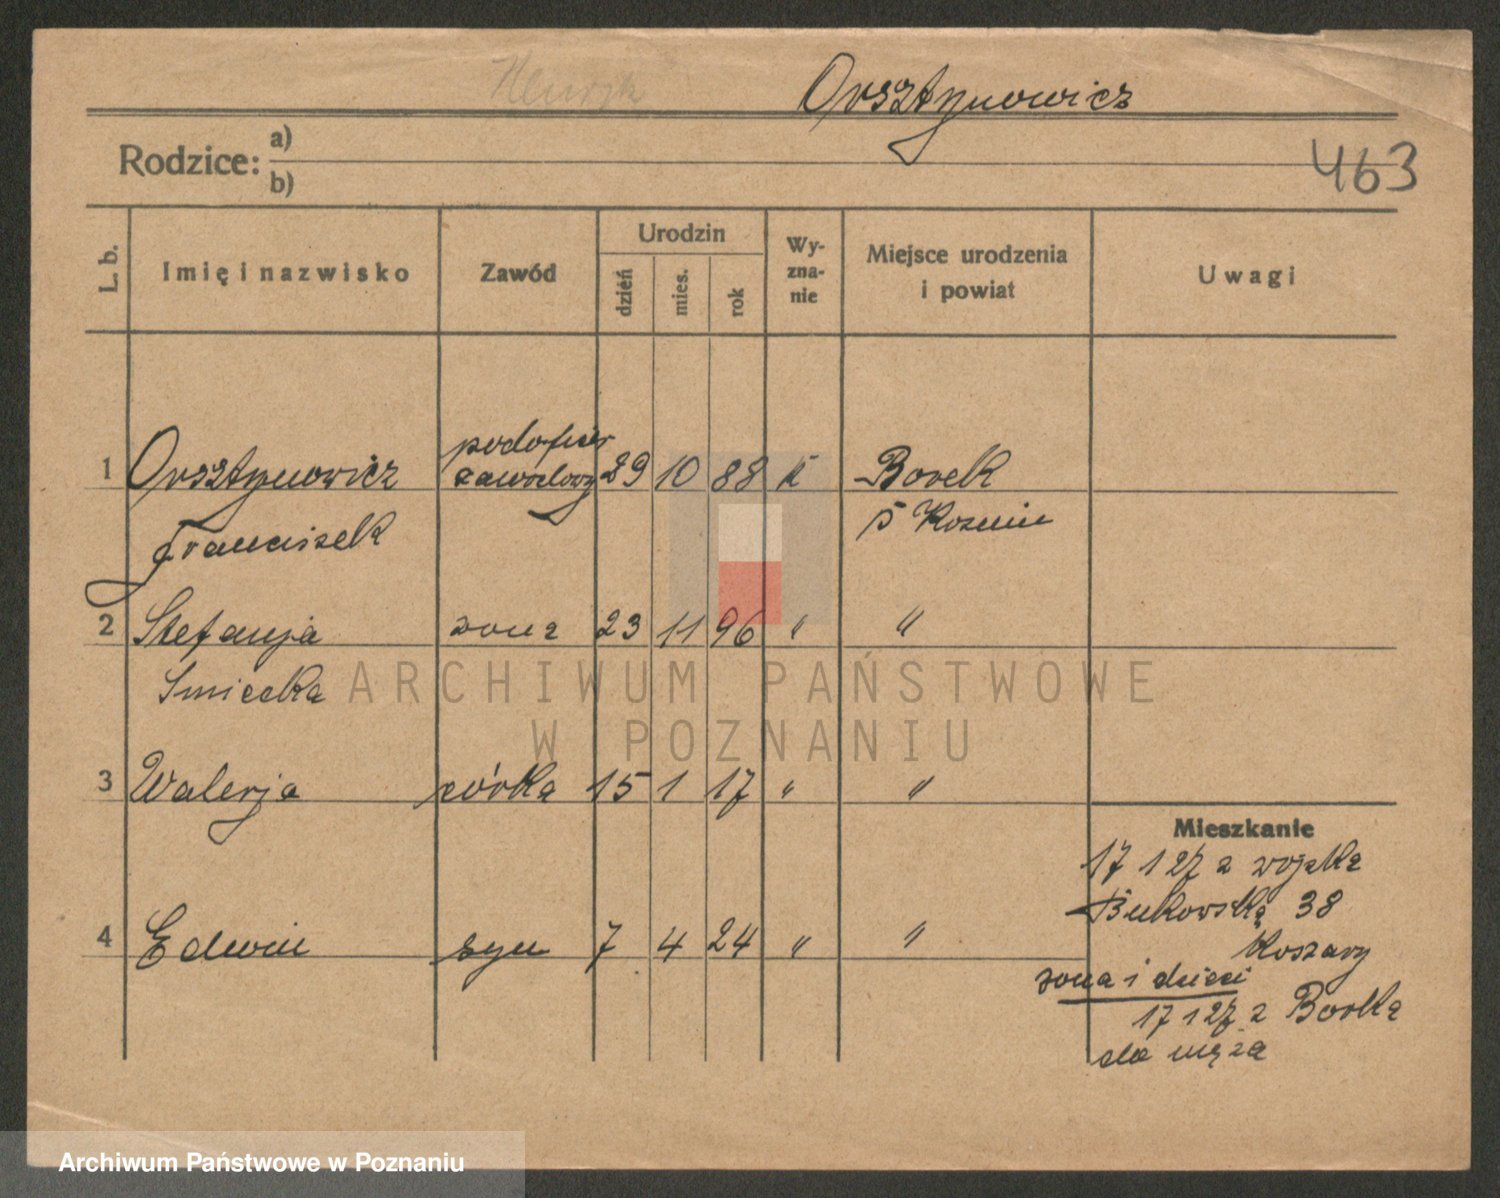 Henryk
Orsztynowicz
Rodzice: a)
b)
463
L. b. Imię i nazwisko Zawód Urodzin dzień mies. rok Wyzna-nie Miejsce urodzenia i powiat Uwagi
podoficer
1 Orsztynowicz zawodowy 29 10 88 k Borek
Franciszek p Kozmin
2 Stefanja żona 23 11 96 " "
Smiecka
ARCHIWUM PAŃSTWOWE
W POZNANIU
3 Walerja córka 15 1 17 " "
Mieszkanie
17 1 27 z wojska
Bukowska 38
4 Edwin syn 7 4 24 " "
Koszary
żona i dzieci
17 1 27 z Borka
do męża
Archiwum Państwowe w Poznaniu